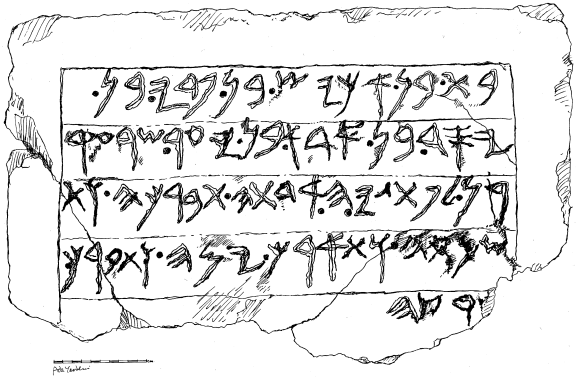 𐤁𐤕.𐤁𐤍.𐤀𐤊𐤉𐤔.𐤁𐤍.𐤐𐤃𐤉.𐤁𐤍.
𐤉𐤎𐤃.𐤁𐤍.𐤀𐤃𐤀.𐤁𐤍.𐤉𐤏𐤓.𐤔𐤓.𐤏𐤒
𐤓𐤍.𐤋𐤐𐤕𐤂𐤉𐤄.𐤀𐤃𐤕𐤄.𐤕𐤁𐤓𐤊𐤄.𐤅𐤕
𐤔𐤌𐤓𐤄.𐤅𐤕𐤀𐤓𐤊.𐤉𐤌𐤄.𐤅𐤕𐤁𐤓𐤊
𐤓𐤑𐤄